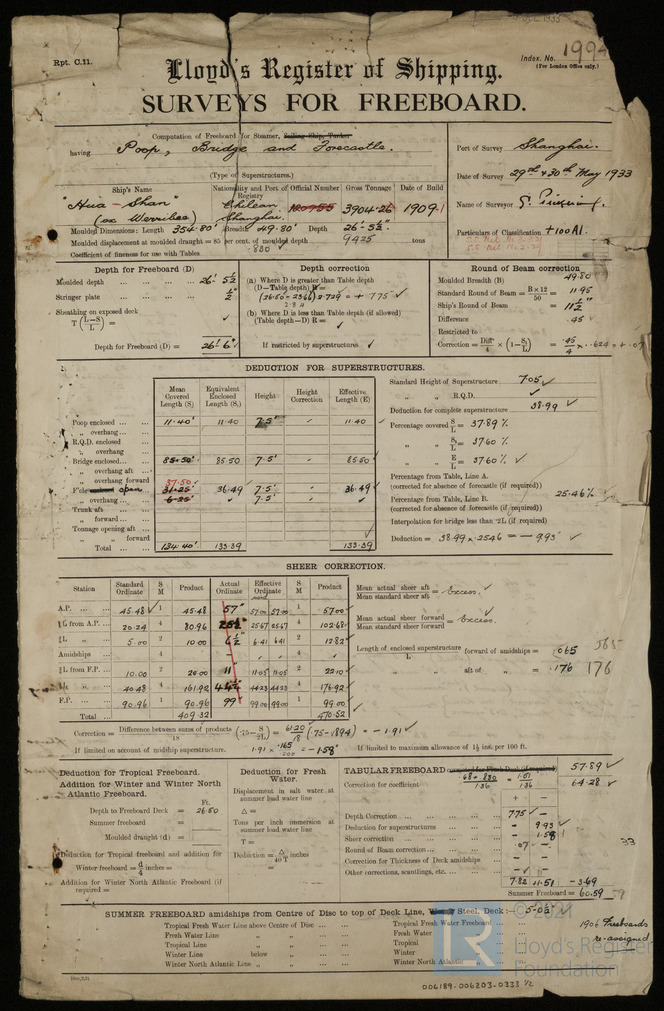 Rpt. C.11.
Index. No. 1994
(For London Office only.)
Lloyd's Register of Shipping.
SURVEYS FOR FREEBOARD.
Computation of Freeboard for Steamer, Sailing Ship, Tanker
having Poop, Bridge and Forecastle.
(Type of Superstructures.)
Port of Survey Shanghai.
Date of Survey 29th & 30th May 1933
Name of Surveyor
Particulars of Classification +100A1.
Ship's Name
Nationality and Port of Registry
Official Number
Gross Tonnage
Date of Build
"Hua-Shan" (ex Werribee)
Chilean Shanghai.
120755
3904.26
1909-1
Moulded Dimensions: Length 354.80' Breadth 49.80' Depth 26'-5½"
Moulded displacement at moulded draught = 85 per cent. of moulded depth 9425 tons
Coefficient of fineness for use with Tables .830
Depth for Freeboard (D)
Moulded depth 26'-5½"
Stringer plate ½"
Sheathing on exposed deck
T(L-S/L) =
Depth for Freeboard (D) = 26'-6"
Depth correction
(a) Where D is greater than Table depth
(D-Table depth) R =
(26.50-23.66) 2.729 = + 7.75
2.84
(b) Where D is less than Table depth (if allowed)
(Table depth-D) R =
If restricted by superstructures
Round of Beam correction
Moulded Breadth (B) 49.80
Standard Round of Beam = B×12/50 = 11.95
Ship's Round of Beam = 11½"
Difference .45
Restricted to
Correction = Diff/4 × (1-S₁/L) = .45/4 × .624 = + .07
DEDUCTION FOR SUPERSTRUCTURES.
Mean Covered Length (S)
Equivalent Enclosed Length (S₁)
Height
Height Correction
Effective Length (E)
Poop enclosed 11.40' 11.40 7.5' 11.40
„ overhang
R.Q.D. enclosed
„ overhang
Bridge enclosed 85.50' 85.50 7.5' 85.50
„ overhang aft
„ overhang forward
37.50'
F'cle enclosed open 31.25' 36.49 7.5' 36.49
„ overhang 6.25' 7.5'
Trunk aft
„ forward
Tonnage opening aft
„ forward
Total 134.40' 133.39 133.39
Standard Height of Superstructure 7.05
„ „ R.Q.D.
Deduction for complete superstructure 38.99
Percentage covered S/L = 37.89 %
„ „ S₁/L = 37.60 %
„ „ E/L = 37.60 %
Percentage from Table, Line A.
(corrected for absence of forecastle (if required))
Percentage from Table, Line B. 25.46 %
(corrected for absence of forecastle (if required))
Interpolation for bridge less than .2L (if required)
Deduction = 38.99 × .2546 = - 9.93
SHEER CORRECTION.
Station
Standard Ordinate
S M
Product
Actual Ordinate
Effective Ordinate
S M
Product
A.P. 45.48 1 45.48 57" 57.00 57.00 1 57.00
⅙L from A.P. 20.24 4 80.96 25⅝" 25.67 25.67 4 102.68
⅓L „ 5.00 2 10.00 6½" 6.41 6.41 2 12.82
Amidships 4 4
⅓L from F.P. 10.00 2 20.00 11" 11.05 11.05 2 22.10
⅙L „ 40.48 4 161.92 44¼" 44.23 44.23 4 176.92
F.P. 90.96 1 90.96 99" 99.00 99.00 1 99.00
Total 409.32 470.52
Mean actual sheer aft / Mean standard sheer aft = Excess.
Mean actual sheer forward / Mean standard sheer forward = Excess.
Length of enclosed superstructure / L forward of amidships = .065
„ „ aft of „ = .176 176
Correction = Difference between sums of products/18 (.75-S/2L) = 61.20/18 (.75-.1894) = - 1.91
If limited on account of midship superstructure. 1.91 × .165/.200 = - 1.58"
If limited to maximum allowance of 1½ ins. per 100 ft.
Deduction for Tropical Freeboard.
Addition for Winter and Winter North Atlantic Freeboard.
Ft.
Depth to Freeboard Deck = 26.50
Summer freeboard =
Moulded draught (d) =
Deduction for Tropical freeboard and addition for Winter freeboard = d/4 inches =
Addition for Winter North Atlantic Freeboard (if required) =
Deduction for Fresh Water.
Displacement in salt water at summer load water line
Δ =
Tons per inch immersion at summer load water line
T =
Deduction = Δ/40 T inches
=
TABULAR FREEBOARD 57.89
Correction for coefficient .68 + .830/1.36 = 1.51/1.36 64.28
+ -
Depth Correction 7.75 -
Deduction for superstructures - 9.93
Sheer correction - 1.58
Round of Beam correction .07 -
Correction for Thickness of Deck amidships -
Other corrections, scantlings, etc. -
7.82 11.51 - 3.69
Summer Freeboard = 60.59 59
33
SUMMER FREEBOARD amidships from Centre of Disc to top of Deck Line, Wood Steel, Deck:- 5'-0½"
Tropical Fresh Water Line above Centre of Disc
Fresh Water Line „ „
Tropical Line „ „
Winter Line below „
Winter North Atlantic Line „ „
Tropical Fresh Water Freeboard
Fresh Water „
Tropical „
Winter „
Winter North Atlantic „
1906 Freeboards re-assigned
© 2021
LR
Lloyd's Register
Foundation
006189-006203-0333 1/2